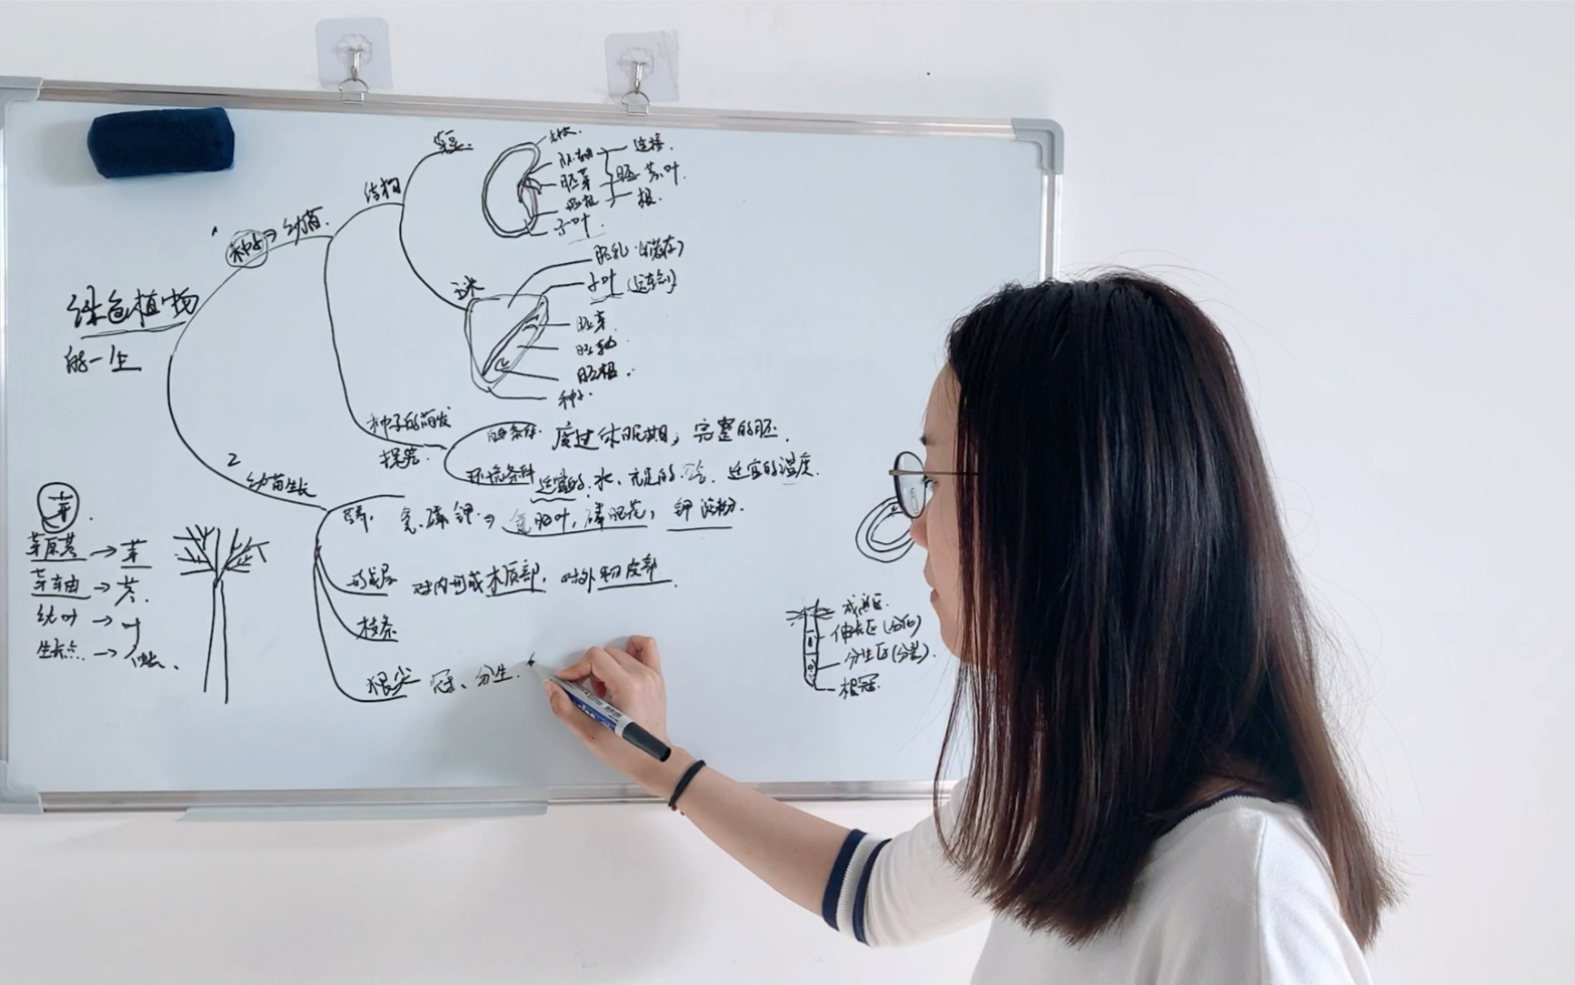 绿色植物
的一生
种子→幼苗
结构
菜豆
胚轴
连接
胚芽
胚
茎叶
胚根
根
子叶
玉米
胚乳(储存)
子叶(运输)
胚芽
胚轴
胚根
种子的萌发
探究
自身条件
度过休眠期,完整的胚
环境条件
适宜的水、充足的空气、适宜的温度
2
幼苗生长
氮、磷、钾→氮肥叶,磷肥花,钾淀粉
形成层
对内形成木质部,对外韧皮部
枝条
根尖
冠、分生
芽
芽原基→芽
芽轴→茎
幼叶→叶
生长点→
成熟区
伸长区
分生区(分裂)
根冠